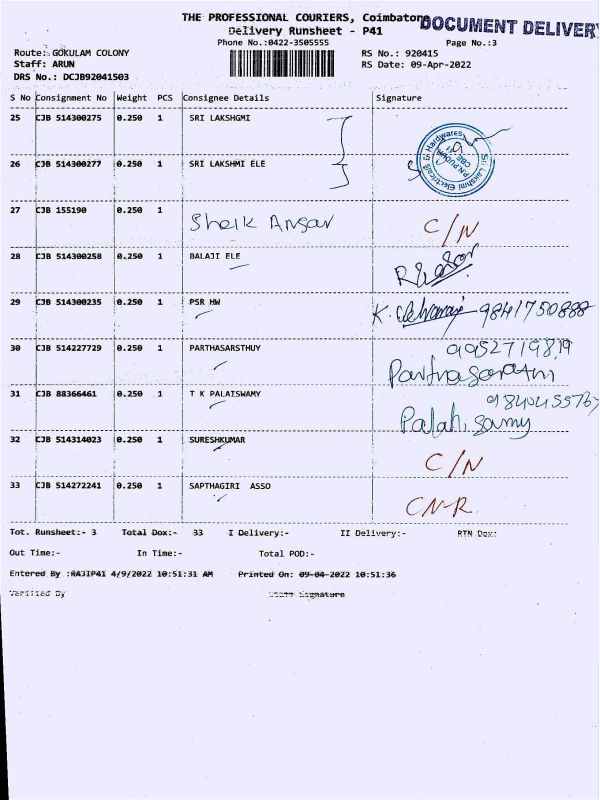 THE PROFESSIONAL COURIERS, Coimbatore
DOCUMENT DELIVERY
Delivery Runsheet - P41
Phone No.:0422-3505555
Page No.:3
Route: GOKULAM COLONY
RS No.: 920415
Staff: ARUN
RS Date: 09-Apr-2022
DRS No.: DCJB92041503
S No Consignment No Weight PCS Consignee Details Signature
25 CJB 514300275 0.250 1 SRI LAKSHGMI
Sri Lakshmi Electricals & Hardwares
P.N.PUDUR
CBE-41
26 CJB 514300277 0.250 1 SRI LAKSHMI ELE
27 CJB 155190 0.250 1 Sheik Ansar C/N
28 CJB 514300258 0.250 1 BALAJI ELE
29 CJB 514300235 0.250 1 PSR HW K. 9841750888
30 CJB 514227729 0.250 1 PARTHASARSTHUY 9952719819
Parthasarathi
31 CJB 88366461 0.250 1 T K PALAISWAMY
Palanisamy
32 CJB 514314023 0.250 1 SURESHKUMAR C/N
33 CJB 514272241 0.250 1 SAPTHAGIRI ASSO CN-R.
Tot. Runsheet:- 3 Total Dox:- 33 I Delivery:- II Delivery:- RTN Dox:
Out Time:- In Time:- Total POD:-
Entered By :RAJIP41 4/9/2022 10:51:31 AM Printed On: 09-04-2022 10:51:36
Verified By Staff Signature